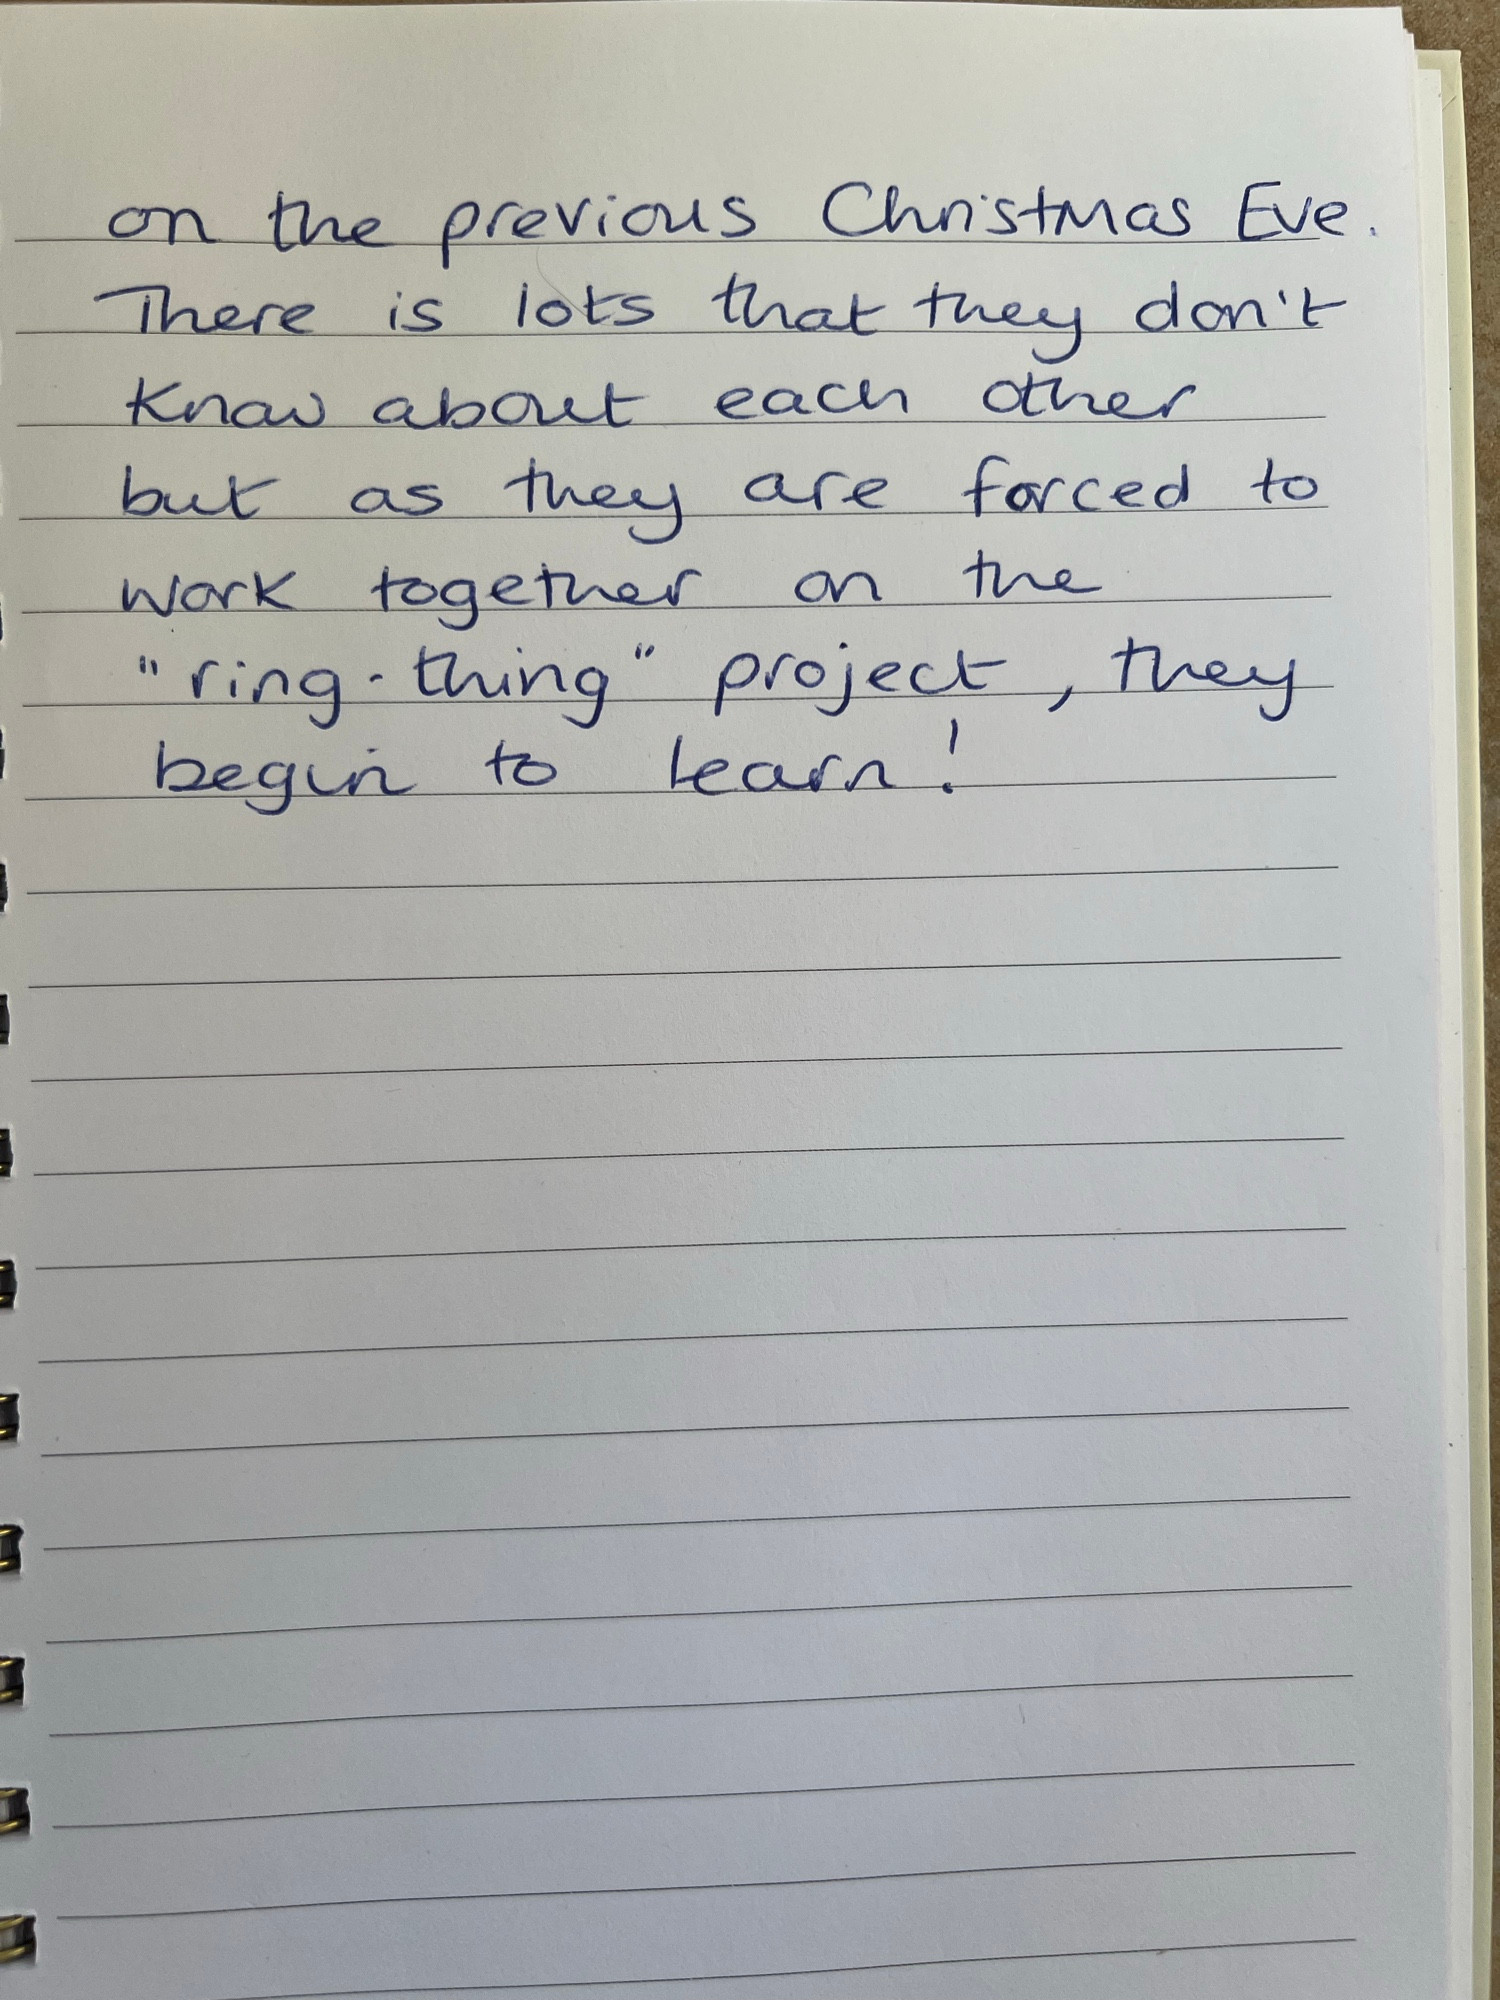 on the previous Christmas Eve.
There is lots that they don't
know about each other
but as they are forced to
work together on the
"ring-thing" project, they
begin to learn!